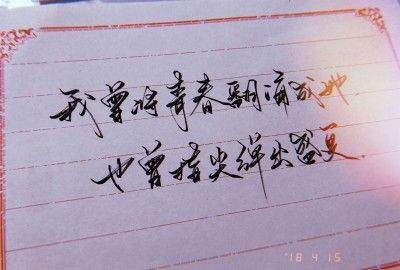 我曾将青春翻涌成她
也曾指尖弹出盛夏
'18 4 15